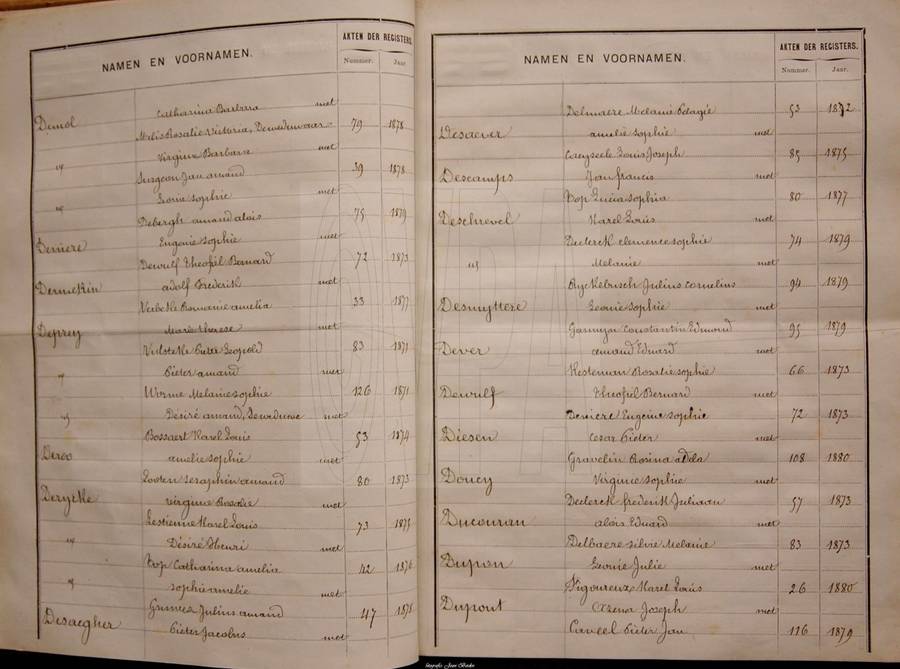 NAMEN EN VOORNAMEN.
AKTEN DER REGISTERS.
Nummer. Jaar.
Catharina Barbara met
Demol
Melis Rosalie Victoria, 79 1878
" Virginie Barbara met
Surgeon Jan amand 39 1878
" Leonie Sophie met
Debergh amand alois 75 1879
Deniere Eugenie Sophie met
Dewulf Theofiel Bernard 72 1873
Dermekin adolf Frederik met
Verbeke Romanie amelia 33 1877
Deprey Marie Therese met
Pieter Leopold 83 1871
" Pieter amand met
Worme Melanie Sophie 126 1871
" Désiré amand, met
Bossaert Karel Louis 53 1874
Deroo amelie Sophie met
Zooten Seraphin amand 80 1873
Derycke Virginie Rosalie met
Lestienne Karel Louis 73 1875
" Désiré Henri met
Top Catharina amelia 42 1876
" Sophie amelie met
Julius amand 47 1878
Desaegher Pieter Jacobus met
NAMEN EN VOORNAMEN.
AKTEN DER REGISTERS.
Nummer. Jaar.
Delmaere Melanie Pelagie 53 1872
Desaever amelie Sophie met
Caeyseele Louis Joseph 85 1875
Descamps Jan Francis met
Top Lucia Sophia 80 1877
Deschrevel Karel Louis met
Declerck Clemence Sophie 74 1879
" Melanie met
Ryckebusch Julius Cornelius 94 1879
Desmyttere Leonie Sophie met
Constantin Edmond 95 1879
Dever amand Eduard met
Kesteman Rosalie Sophie 66 1873
Dewulf Theofiel Bernard met
Deniere Eugenie Sophie 72 1873
Diesen Cesar Pieter met
Gravelin Rosina adela 108 1880
Doucy Virginie Sophie met
Declerck Frederik Juliaan 57 1873
Ducouran alois Eduard met
Delbaere Silvie Melanie 83 1873
Dupon Leonie Julie met
Vigoureux Karel Louis 26 1880
Dupont Joseph met
Cauceel Pieter Jan 116 1879